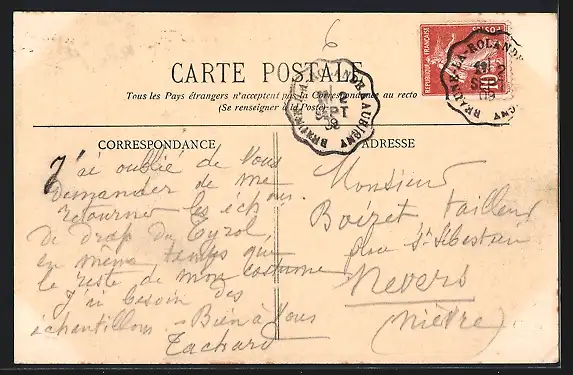 6
CARTE POSTALE
Tous les Pays étrangers n'acceptent pas la Correspondance au recto
(Se renseigner à la Poste)
REPUBLIQUE FRANÇAISE
POSTES
10
2
SEPT
09
CORRESPONDANCE
ADRESSE
J'ai oublié de vous
demander de me
retourner les échons
de drap du Tyrol
en même temps que
le reste de mon costume
J'ai besoin des
échantillons. - Bien à vous
Tachard
Monsieur
Boizet tailleur
place St Sébastien
Nevers
(Nièvre)